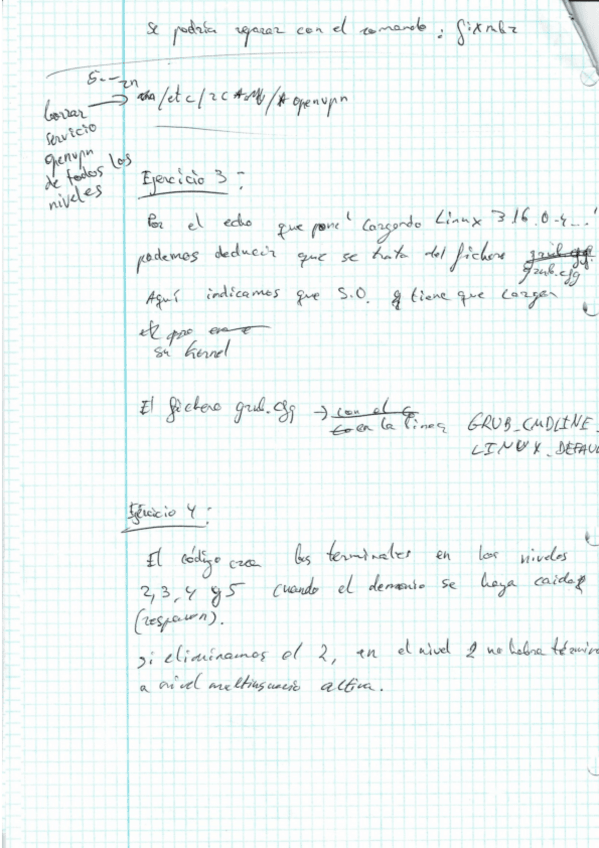 Se podría reparar con el comando: fixmbr
S--2n
/etc/rc*.d/*openvpn
borrar
servicio
openvpn
de todos los
niveles
Ejercicio 3:
Por el echo que pone 'Cargando Linux 3.16.0-4...'
podemos deducir que se trata del fichero grub.cfg
grub.cfg
Aquí indicamos que S.O. q tiene que cargar
su Kernel
El fichero grub.cfg → con el
en la linea GRUB_CMDLINE_
LINUX_DEFAU
Ejercicio 4:
El código crea las terminales en los niveles
2, 3, 4 y 5 cuando el demonio se haya caido
(respawn).
si eliminamos el 2, en el nivel 2 no habra términ
a nivel multiusuario activa.